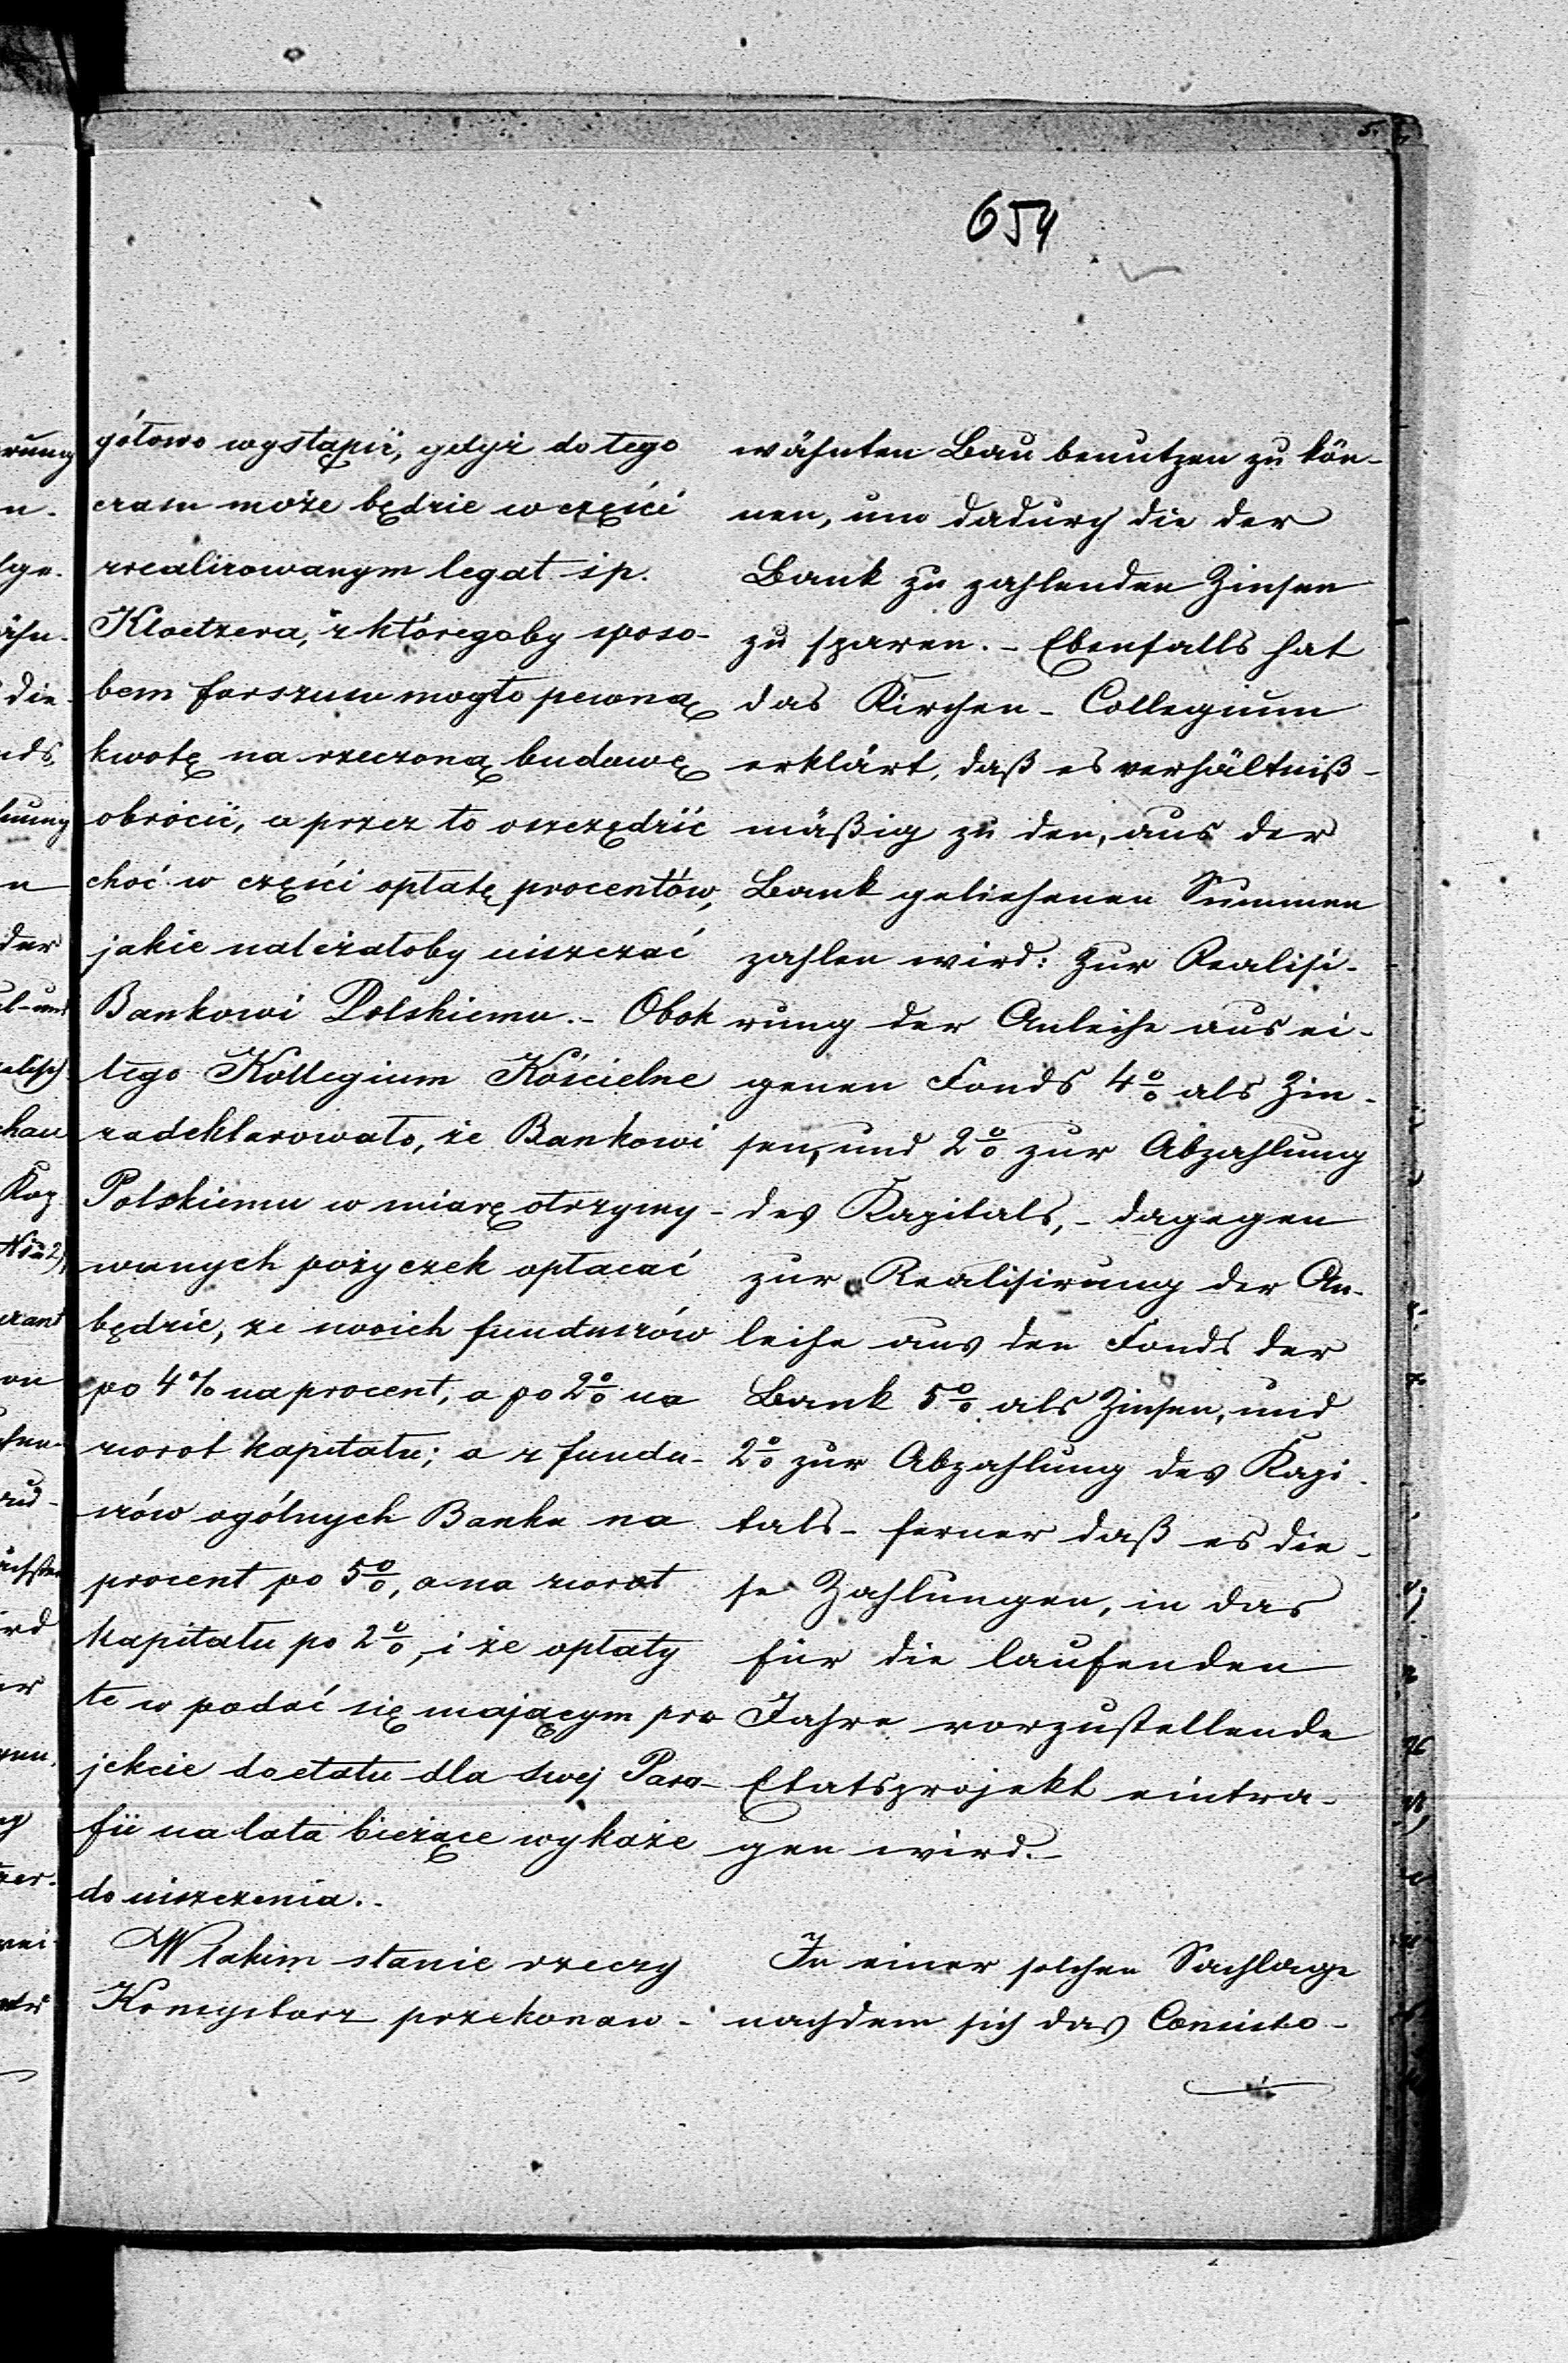 5.
654
gółowo wystąpić, gdyż do tego
czasu może będzie w części
zrealizowanym legat śp.
Kloetzera, z któregoby sposo-
bem forszusu mogło pewną
kwotę na rzeczoną budowę
obrócić, a przez to oszczędzić
choć w części opłatę procentów,
jakie należałoby uiszczać
Bankowi Polskiemu. - Obok
tego Kollegium Kościelne
zadeklarowało, że Bankowi
Polskiemu w miarę otrzymy-
wanych pożyczek opłacać
będzie, ze swoich funduszów
po 4% na procent, a po 2% na
zwrot kapitału; a z fundu-
szów ogólnych Banku na
procent po 5%, a na zwrot
kapitału po 2%, i że opłaty
te w podać się mającym pro
jekcie do etatu dla swej Para-
fii na lata bieżące wykaże
do uiszczenia. -
W takim stanie rzeczy
Konsystorz przekonaw-
wähnten Bau benutzen zu kön-
nen, um dadurch die der
Bank zu zahlenden Zinsen
zu sparen. - Ebenfalls hat
das Kirchen-Collegium
erklärt, daß es verhältniß-
mäßig zu den, aus der
Bank geliehenen Summen
zahlen wird: Zur Realisi-
rung der Anleihe aus ei-
genen Fonds 4% als Zin-
sen, und 2% zur Abzahlung
des Kapitals, - dagegen
zur Realisirung der An-
leihe aus den Fonds der
Bank 5% als Zinsen, und
2% zur Abzahlung des Kapi-
tals - ferner daß es die-
se Zahlungen, in das
für die laufenden
Jahre vorzustellende
Etatsprojekt eintra-
gen wird. -
In einer solchen Sachlage
nachdem sich das Consisto-